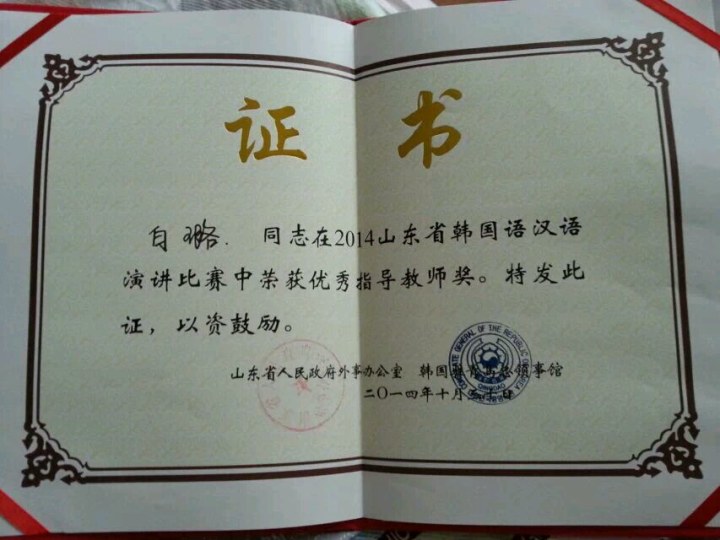 证书
自璐. 同志在2014山东省韩国语汉语
演讲比赛中荣获优秀指导教师奖。特发此
证，以资鼓励。
山东省人民政府外事办公室 韩国驻青岛总领事馆
二〇一四年十月 日
CONSULATE GENERAL OF THE REPUBLIC OF KOREA